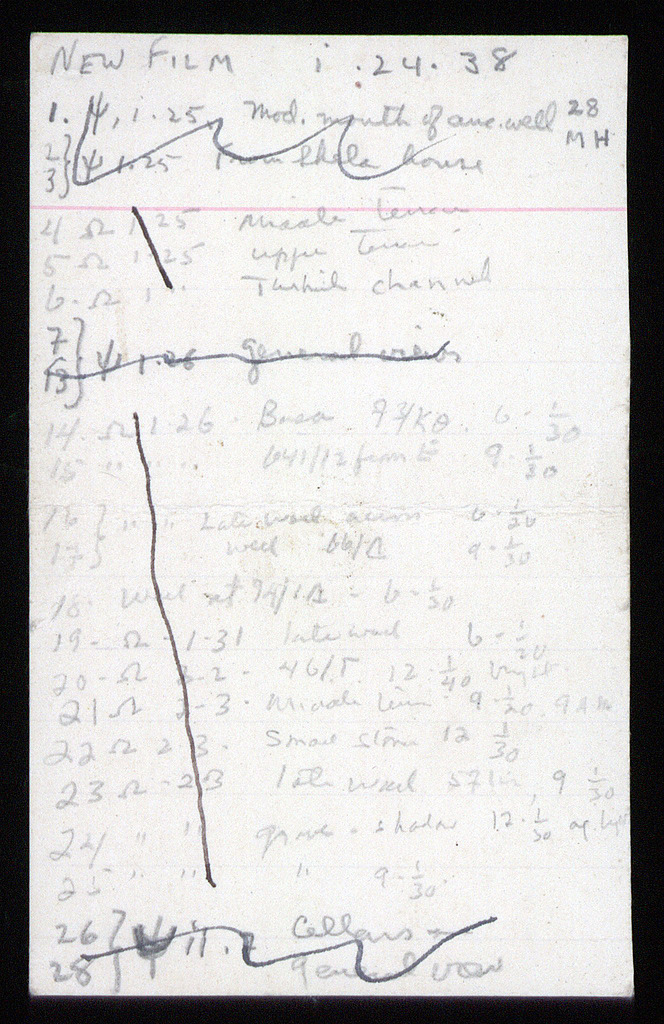 NEW FILM i.24.38
1. Ψ, 1.25. Mod. mouth of anc. well 28 MH
2
3 } Ψ 1.25 From Skala house
4 Ω 1.25 Middle Terrace
5 Ω 1.25 upper Terrace
6. Ω 1 " Turkish channel
7
13 } Ψ 1.26 general views
14. Ω 1.26. 93/ΚΘ. 6 - 1/30
15 " " " 9. 1/30
16 } " " Late wall 6 - 1/20
17 } " wall 66/Δ 9 - 1/30
18. Wall at - 6 - 1/30
19 - Ω - 1-31 late wall 6 - 1/20
20 - Ω 2-2 - 46/Γ. 12 1/40 bright.
21 Ω 2-3. Middle Terr 9 1/20. 9 A.M
22 Ω 2 3. Small stone 12 1/30
23 Ω - 23 late wall 9 1/30
24 " " grave - shadow 12. 1/30
25 " " " 9 - 1/30.
26
28 } Ψ ii. 2 Cellars
General view